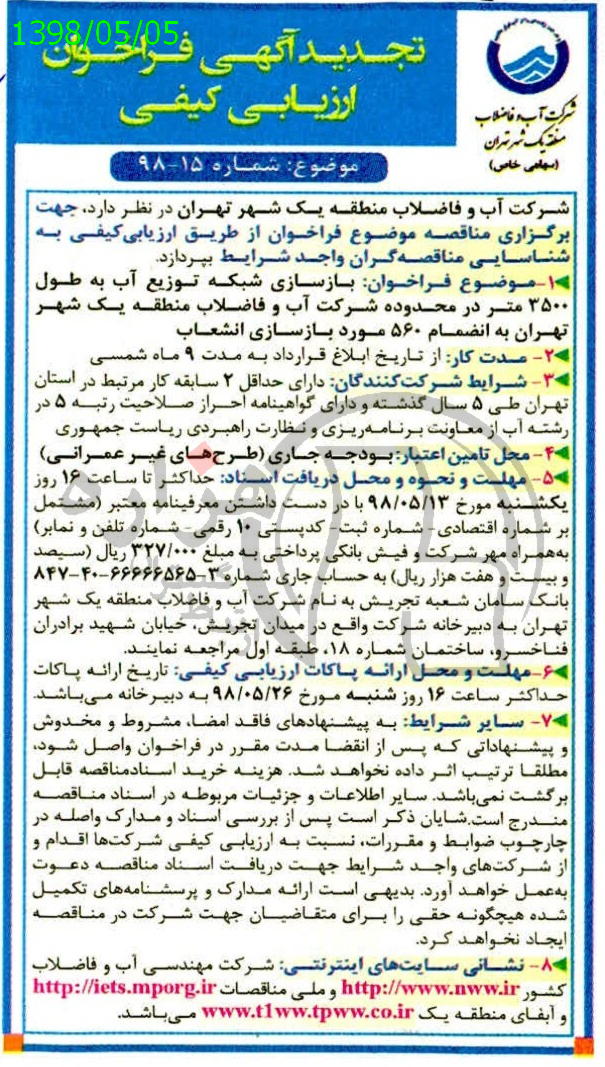 1398/05/05
تجدید آگهی فراخوان
ارزیابی کیفی
شرکت آب و فاضلاب
منطقه یک شهر تهران
(سهامی خاص)
موضوع: شماره ۱۵-۹۸
شرکت آب و فاضلاب منطقه یک شهر تهران در نظر دارد، جهت
برگزاری مناقصه موضوع فراخوان از طریق ارزیابی‌کیفی به
شناسایی مناقصه‌گران واجد شرایط بپردازد.
۱-موضوع فراخوان: بازسازی شبکه توزیع آب به طول
۳۵۰۰ متر در محدوده شرکت آب و فاضلاب منطقه یک شهر
تهران به انضمام ۵۶۰ مورد بازسازی انشعاب
۲- مدت کار: از تاریخ ابلاغ قرارداد به مدت ۹ ماه شمسی
۳- شرایط شرکت‌کنندگان: دارای حداقل ۲ سابقه کار مرتبط در استان
تهران طی ۵ سال گذشته و دارای گواهینامه احراز صلاحیت رتبه ۵ در
رشته آب از معاونت برنامه‌ریزی و نظارت راهبردی ریاست جمهوری
۴- محل تامین اعتبار: بودجه جاری (طرح‌های غیر عمرانی)
۵- مهلت و نحوه و محل دریافت اسناد: حداکثر تا ساعت ۱۶ روز
یکشنبه مورخ ۹۸/۰۵/۱۳ با در دست داشتن معرفینامه معتبر (مشتمل
بر شماره اقتصادی - شماره ثبت- کدپستی ۱۰ رقمی- شماره تلفن و نمابر)
به‌همراه مهر شرکت و فیش بانکی پرداختی به مبلغ ۳۲۷/۰۰۰ ریال (سیصد
و بیست و هفت هزار ریال) به حساب جاری شماره ۳-۶۶۶۶۶۵۶۵-۴۰-۸۴۷
بانک سامان شعبه تجریش به نام شرکت آب و فاضلاب منطقه یک شهر
تهران به دبیرخانه شرکت واقع در میدان تجریش، خیابان شهید برادران
فناخسرو، ساختمان شماره ۱۸، طبقه اول مراجعه نمایند.
۶-مهلت و محل ارائه پاکات ارزیابی کیفی: تاریخ ارائه پاکات
حداکثر ساعت ۱۶ روز شنبه مورخ ۹۸/۰۵/۲۶ به دبیرخانه می‌باشد.
۷- سایر شرایط: به پیشنهادهای فاقد امضا، مشروط و مخدوش
و پیشنهاداتی که پس از انقضا مدت مقرر در فراخوان واصل شود،
مطلقا ترتیب اثر داده نخواهد شد. هزینه خرید اسنادمناقصه قابل
برگشت نمی‌باشد. سایر اطلاعات و جزئیات مربوطه در اسناد مناقصه
مندرج است.شایان ذکر است پس از بررسی اسناد و مدارک واصله در
چارچوب ضوابط و مقررات، نسبت به ارزیابی کیفی شرکت‌ها اقدام و
از شرکت‌های واجد شرایط جهت دریافت اسناد مناقصه دعوت
به‌عمل خواهد آورد. بدیهی است ارائه مدارک و پرسشنامه‌های تکمیل
شده هیچگونه حقی را برای متقاضیان جهت شرکت در مناقصه
ایجاد نخواهد کرد.
۸- نشانی سایت‌های اینترنتی: شرکت مهندسی آب و فاضلاب
کشور http://www.nww.ir و ملی مناقصات http://iets.mporg.ir
و آبفای منطقه یک www.t1ww.tpww.co.ir می‌باشد.